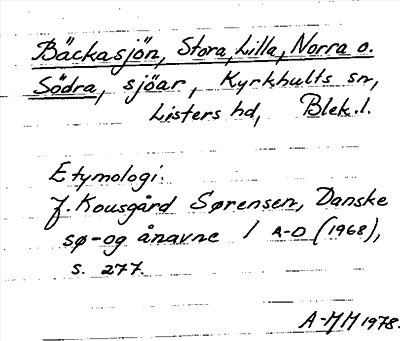 Bäckasjön, Stora, Lilla, Norra o.
Södra, sjöar, Kyrkhults sn,
Listers hd, Blek.l.
Etymologi:
J. Kousgård Sørensen, Danske
sø- og ånavne 1 A-D (1968),
s. 277.
A-MM 1978.